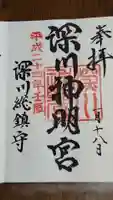 奉拝
一月十八日
深川神明宮
平成二十三年
深川総鎮守